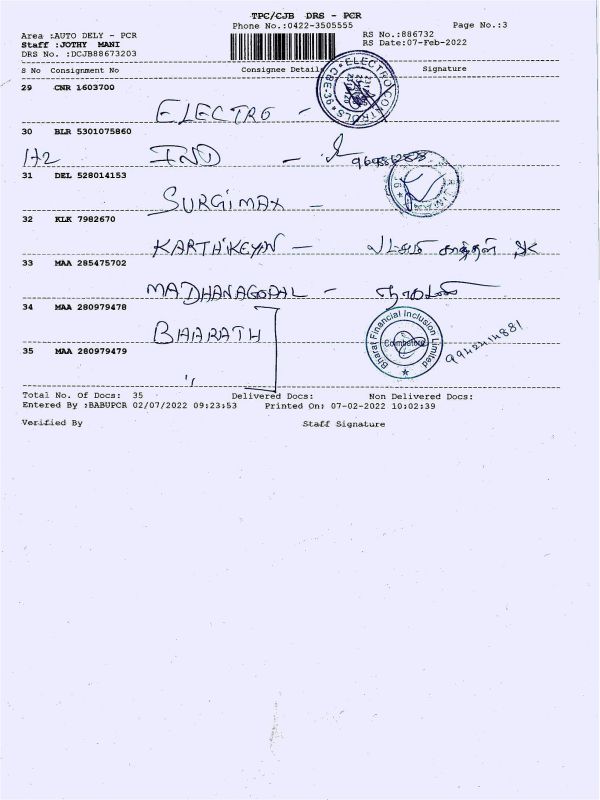 TPC/CJB DRS - PCR
Phone No.:0422-3505555
Page No.:3
Area :AUTO DELY - PCR
RS No.:886732
Staff :JOTHY MANI
RS Date:07-Feb-2022
DRS No. :DCJB88673203
S No Consignment No Consignee Details Signature
29 CNR 1603700
ELECTRO -
ELECTRO CONTROLS * CBE-39 *
30 BLR 5301075860
IND -
31 DEL 528014153
SURGIMAX -
32 KLK 7982670
KARTHIKEYAN -
33 MAA 285475702
MADHANAGOPAL -
34 MAA 280979478
BHARATH
Bharat Financial Inclusion Limited
Coimbatore
9942414881
35 MAA 280979479
"
Total No. Of Docs: 35 Delivered Docs: Non Delivered Docs:
Entered By :BABUPCR 02/07/2022 09:23:53 Printed On: 07-02-2022 10:02:39
Verified By Staff Signature